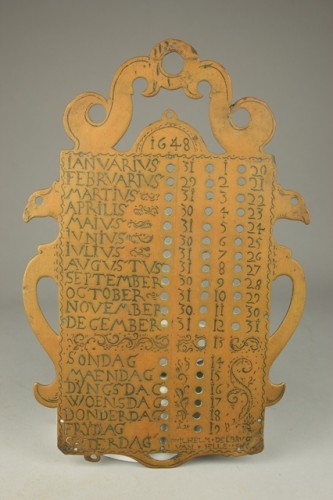 1648
IANUARIUS 31 1 20
FEBRUARIUS 29 2 21
MARTIUS 31 3 22
APRILIS 30 4 23
MAIUS 31 5 24
IUNIUS 30 6 25
IULIUS 31 7 26
AUGUSTUS 31 8 27
SEPTEMBER 30 9 28
OCTOBER 31 10 29
NOVEMBER 30 11 30
DECEMBER 31 12 31
13
SONDAG 14
MAENDAG 15
DYNGSDAG 16
WOENSDAG 17
DONDERDAG 18
FRYDAG 19